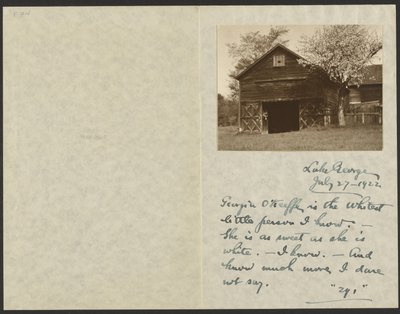 Lake George
July 27-1922
Georgia O'Keeffe is the Whitest
little person I know. —
She is as sweet as she is
white. — I know. — And
know much more, I dare
not say.